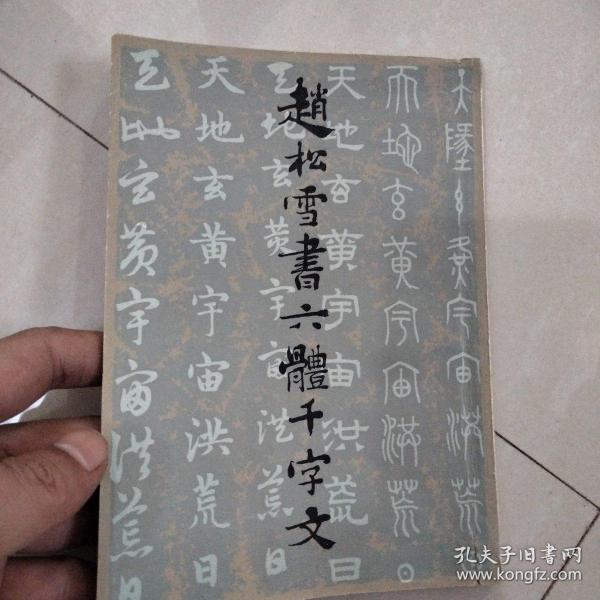 趙松雪書六體千字文
天地玄黃宇宙洪荒日
天地玄黃宇宙洪荒日
天地玄黃宇宙洪荒日
天地玄黃宇宙洪荒日
天地玄黃宇宙洪荒日
天地玄黃宇宙洪荒
孔夫子旧书网
www.kongfz.com